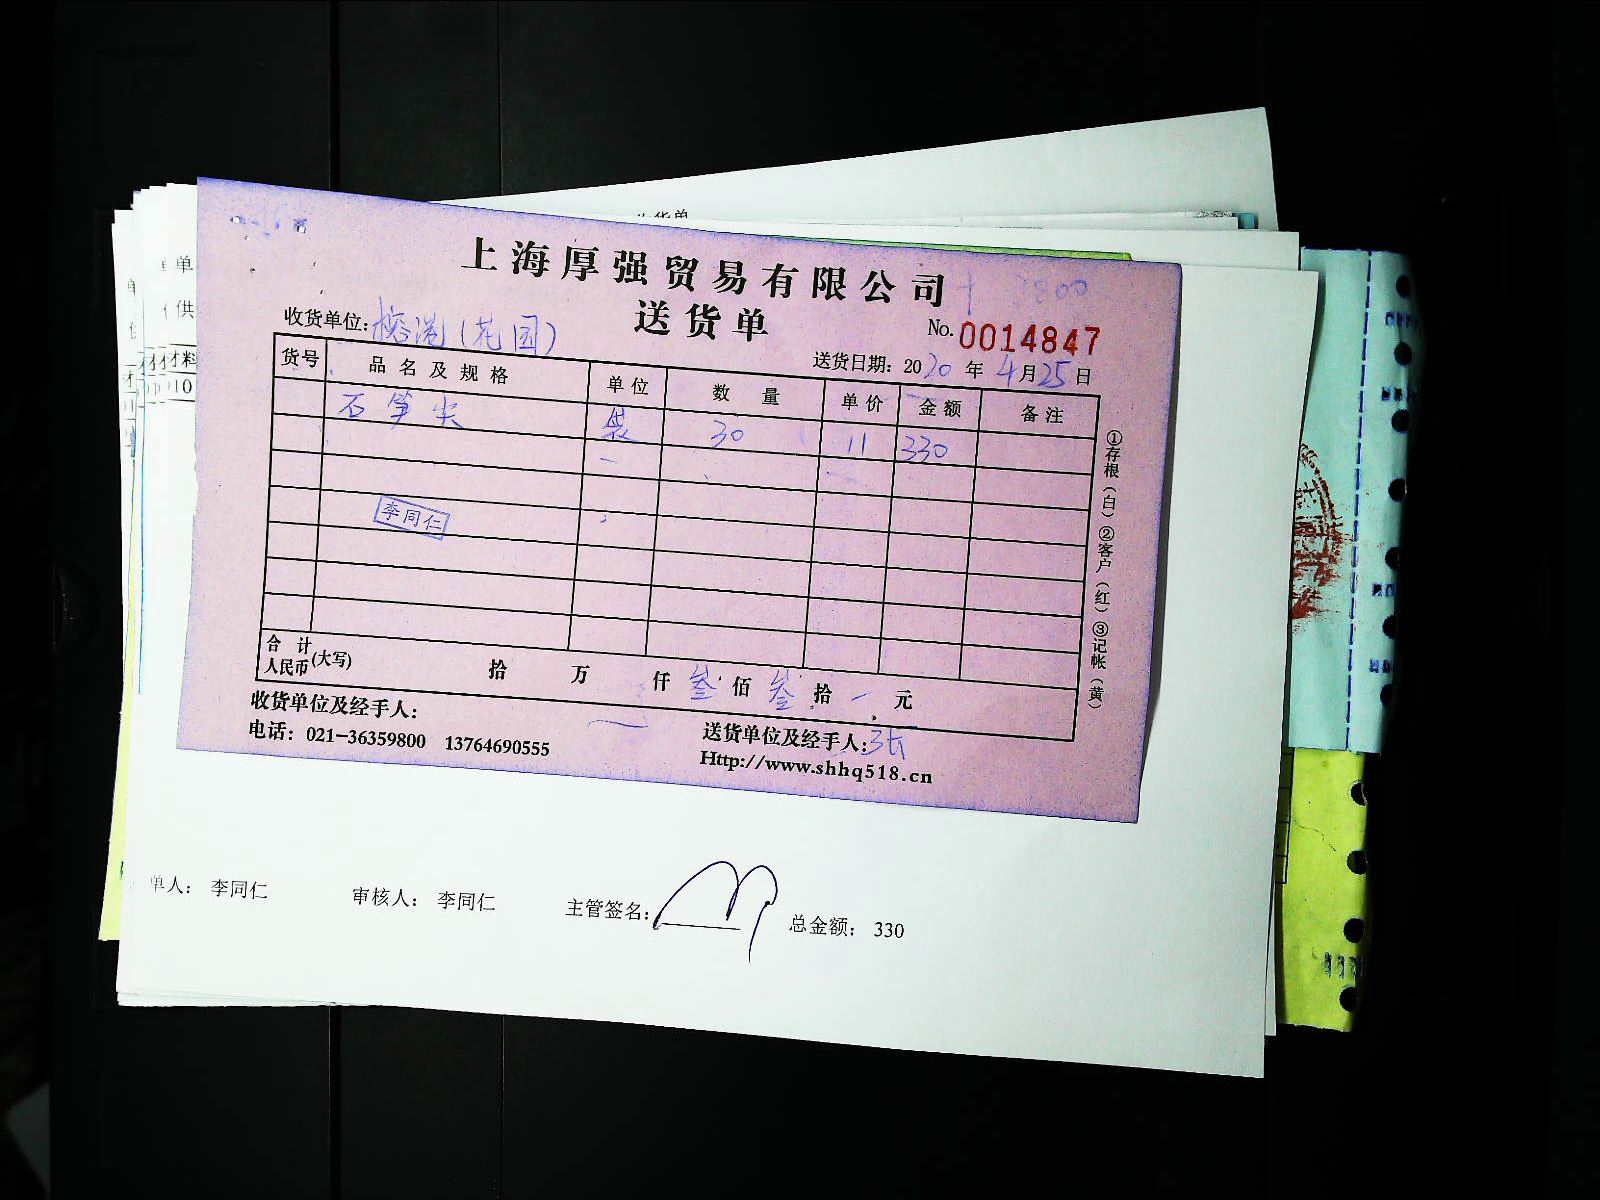 收货单
上海厚强贸易有限公司
送货单
No. 0014847
收货单位: 榕港(花园)
送货日期: 2020年4月25日
货号 品名及规格 单位 数量 单价 金额 备注
石笋尖 袋 30 11 330
李同仁
合计人民币(大写) 拾 万 仟 叁佰 叁拾 元
收货单位及经手人:
送货单位及经手人: 张
电话: 021-36359800 13764690555
Http://www.shhq518.cn
①存根(白)②客户(红)③记帐(黄)
单
供
材料
10
单人: 李同仁 审核人: 李同仁 主管签名: 总金额: 330